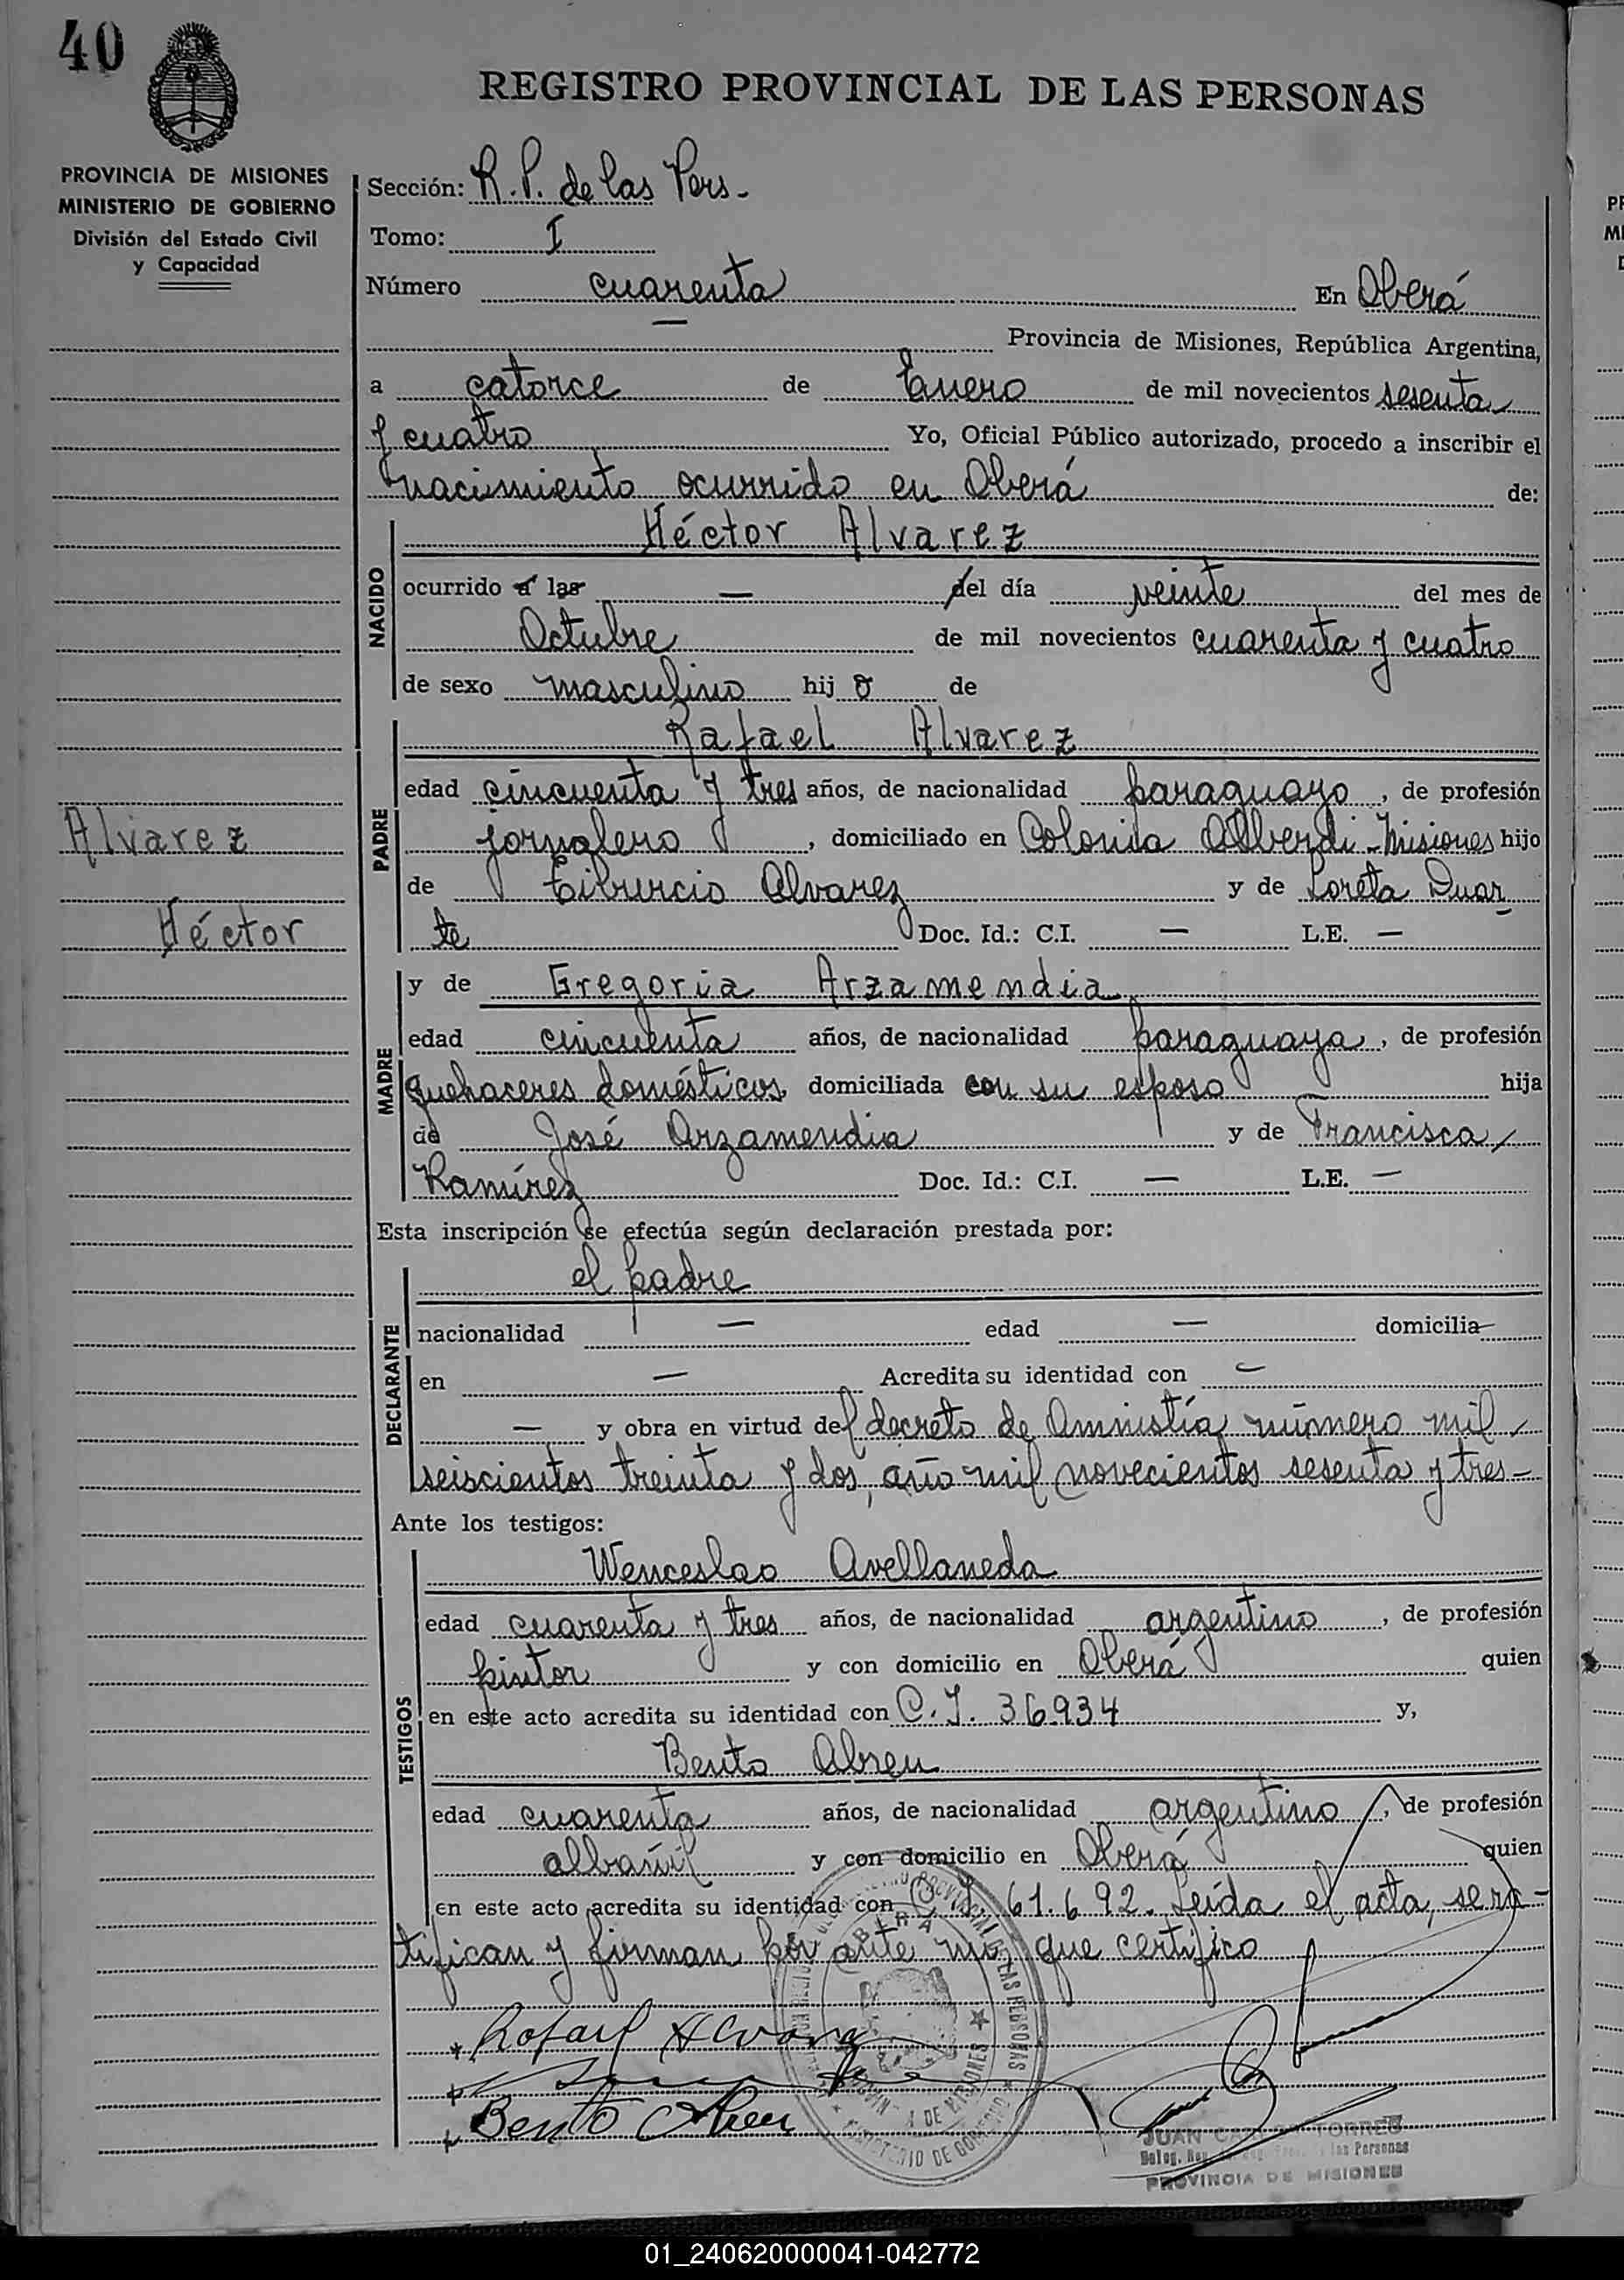 40
REGISTRO PROVINCIAL DE LAS PERSONAS
PROVINCIA DE MISIONES
MINISTERIO DE GOBIERNO
División del Estado Civil
y Capacidad
Sección: R.P. de las Pers-
Tomo: I
Número cuarenta En Oberá
— Provincia de Misiones, República Argentina,
a catorce de Enero de mil novecientos sesenta
y cuatro Yo, Oficial Público autorizado, procedo a inscribir el
nacimiento ocurrido en Oberá de:
NACIDO
Héctor Alvarez
ocurrido a las — del día veinte del mes de
Octubre de mil novecientos cuarenta y cuatro
de sexo masculino hij o de
PADRE
Rafael Alvarez
edad cincuenta y tres años, de nacionalidad paraguayo, de profesión
jornalero, domiciliado en Colonia Alberdi-Misiones hijo
de Tiburcio Alvarez y de Loreta Duar
te Doc. Id.: C.I. — L.E. —
Alvarez
Héctor
MADRE
y de Gregoria Arzamendia
edad cincuenta años, de nacionalidad paraguaya, de profesión
quehaceres domésticos domiciliada con su esposo hija
de José Arzamendia y de Francisca
Ramírez Doc. Id.: C.I. — L.E. —
Esta inscripción se efectúa según declaración prestada por:
DECLARANTE
el padre
nacionalidad — edad — domicilia
en — Acredita su identidad con —
— y obra en virtud del decreto de Amnistía número mil
seiscientos treinta y dos, año mil novecientos sesenta y tres-
Ante los testigos:
TESTIGOS
Wenceslao Avellaneda
edad cuarenta y tres años, de nacionalidad argentino, de profesión
pintor y con domicilio en Oberá quien
en este acto acredita su identidad con C.I. 36934 y,
Bento Abreu
edad cuarenta años, de nacionalidad argentino, de profesión
albañil y con domicilio en Oberá quien
en este acto acredita su identidad con C.I. 61.692. Leída el acta, se ra-
tifican y firman por ante mí que certifico
Rafael Alvarez
Bento Abreu
JUAN TORRES
las Personas
PROVINCIA DE MISIONES
MINISTERIO DE GOBIERNO
01_240620000041-042772